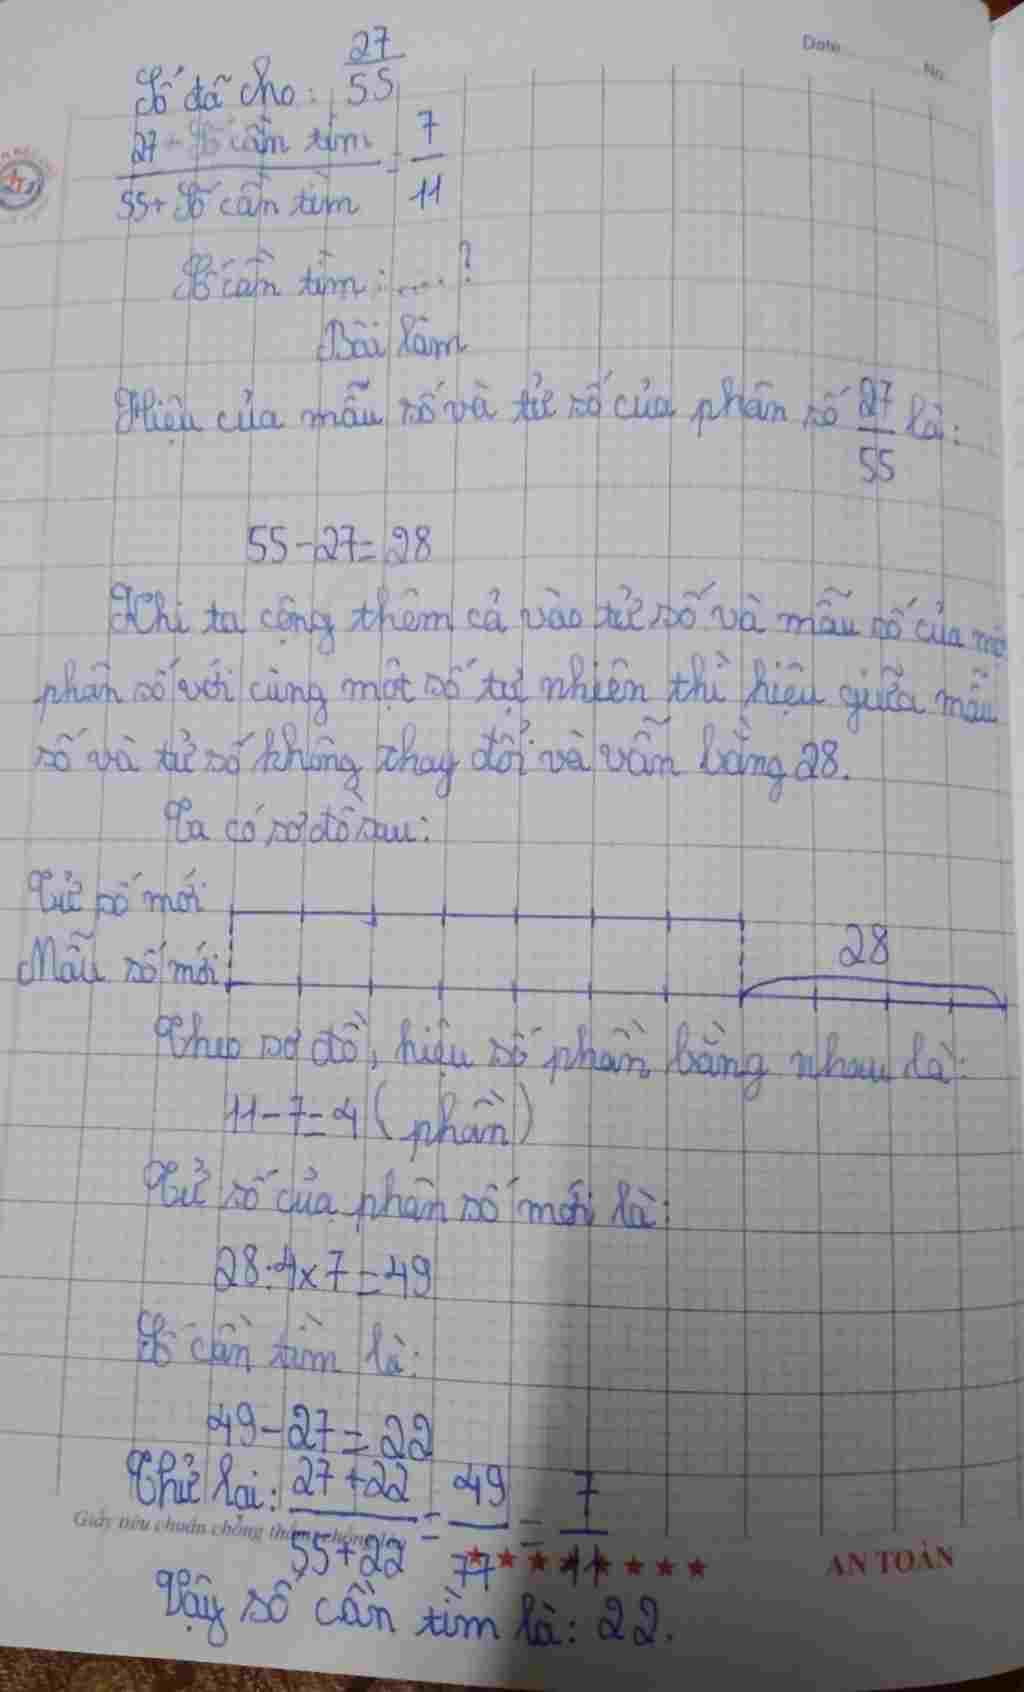 Date No
Số đã cho: 27/55
27 + Số cần tìm / 55 + Số cần tìm = 7/11
Số cần tìm: ....?
Bài làm
Hiệu của mẫu số và tử số của phân số 27/55 là:
55 - 27 = 28
Khi ta cộng thêm cả vào tử số và mẫu số của một
phân số với cùng một số tự nhiên thì hiệu giữa mẫu
số và tử số không thay đổi và vẫn bằng 28.
Ta có sơ đồ sau:
Tử số mới
Mẫu số mới 28
Theo sơ đồ, hiệu số phần bằng nhau là:
11 - 7 = 4 (phần)
Tử số của phân số mới là:
28 : 4 x 7 = 49
Số cần tìm là:
49 - 27 = 22
Thử lại: 27 + 22 / 55 + 22 = 49/77 = 7/11
Giấy tiêu chuẩn chống AN TOÀN
Vậy số cần tìm là: 22.